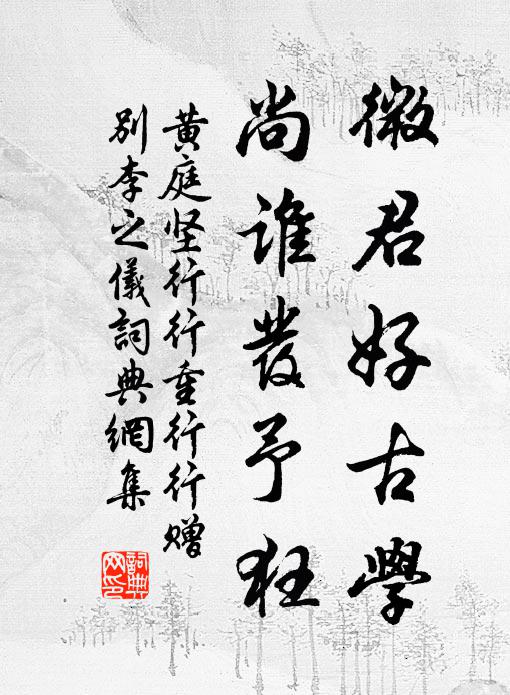 微君好古學
尚誰發予狂
黄庭坚行行重行行赠
別李之儀詞典網集
詞典網印